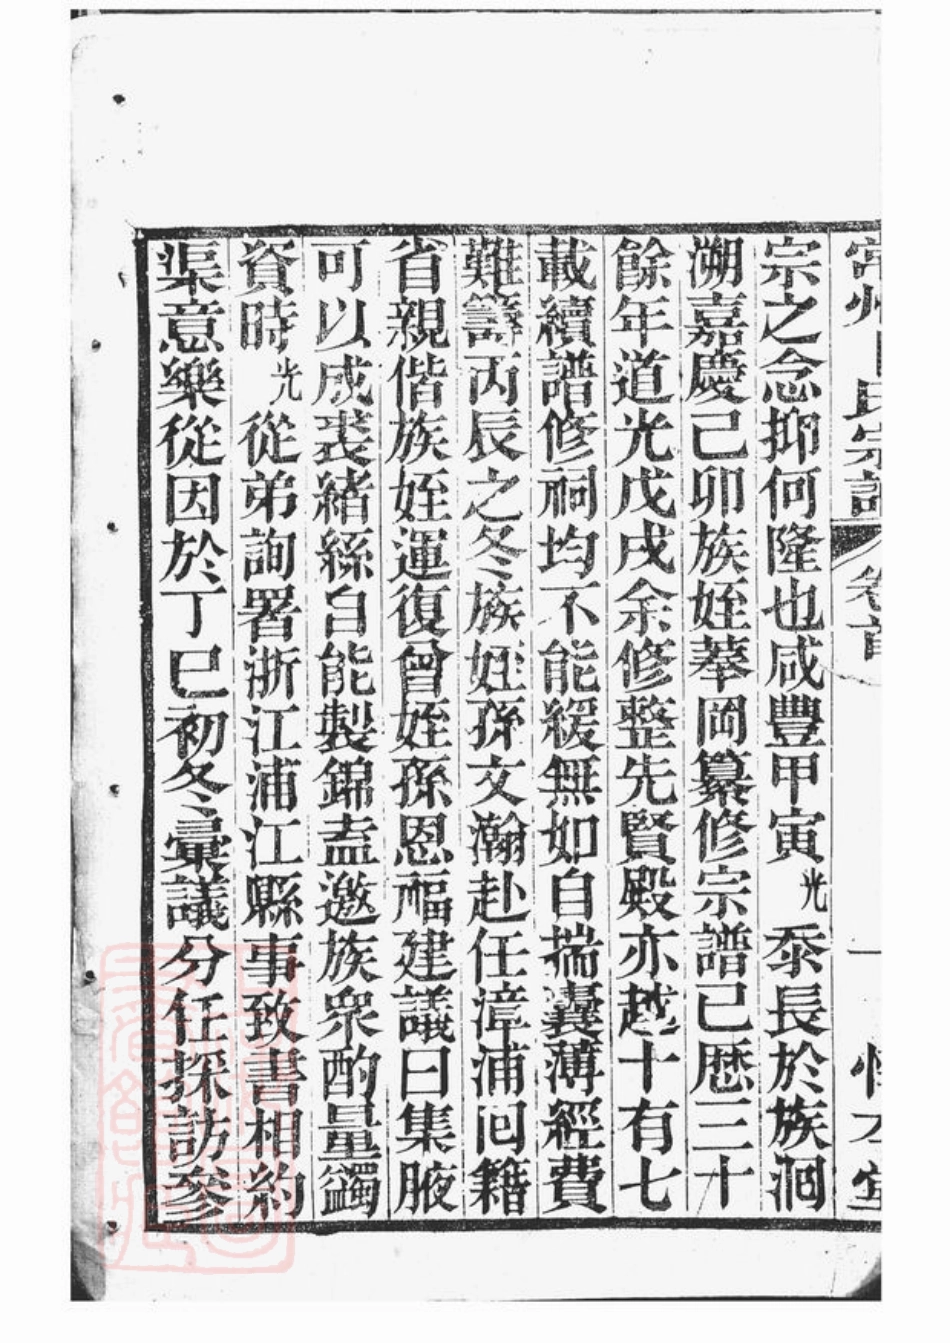 宗之念抑何隆也咸豐甲寅光忝長於族洄
溯嘉慶己卯族姪莘岡纂修宗譜已歷三十
餘年道光戊戌余修整先賢殿亦越十有七
載續譜修祠均不能緩無如自揣囊薄經費
難籌丙辰之冬族姪孫文瀚赴任漳浦囘籍
省親偕族姪運復曾姪孫恩福建議曰集腋
可以成裘緒絲自能製錦盍邀族眾酌量蠲
資時光從弟詢署浙江浦江縣事致書相約
渠意樂從因於丁巳初冬彙議分任採訪參